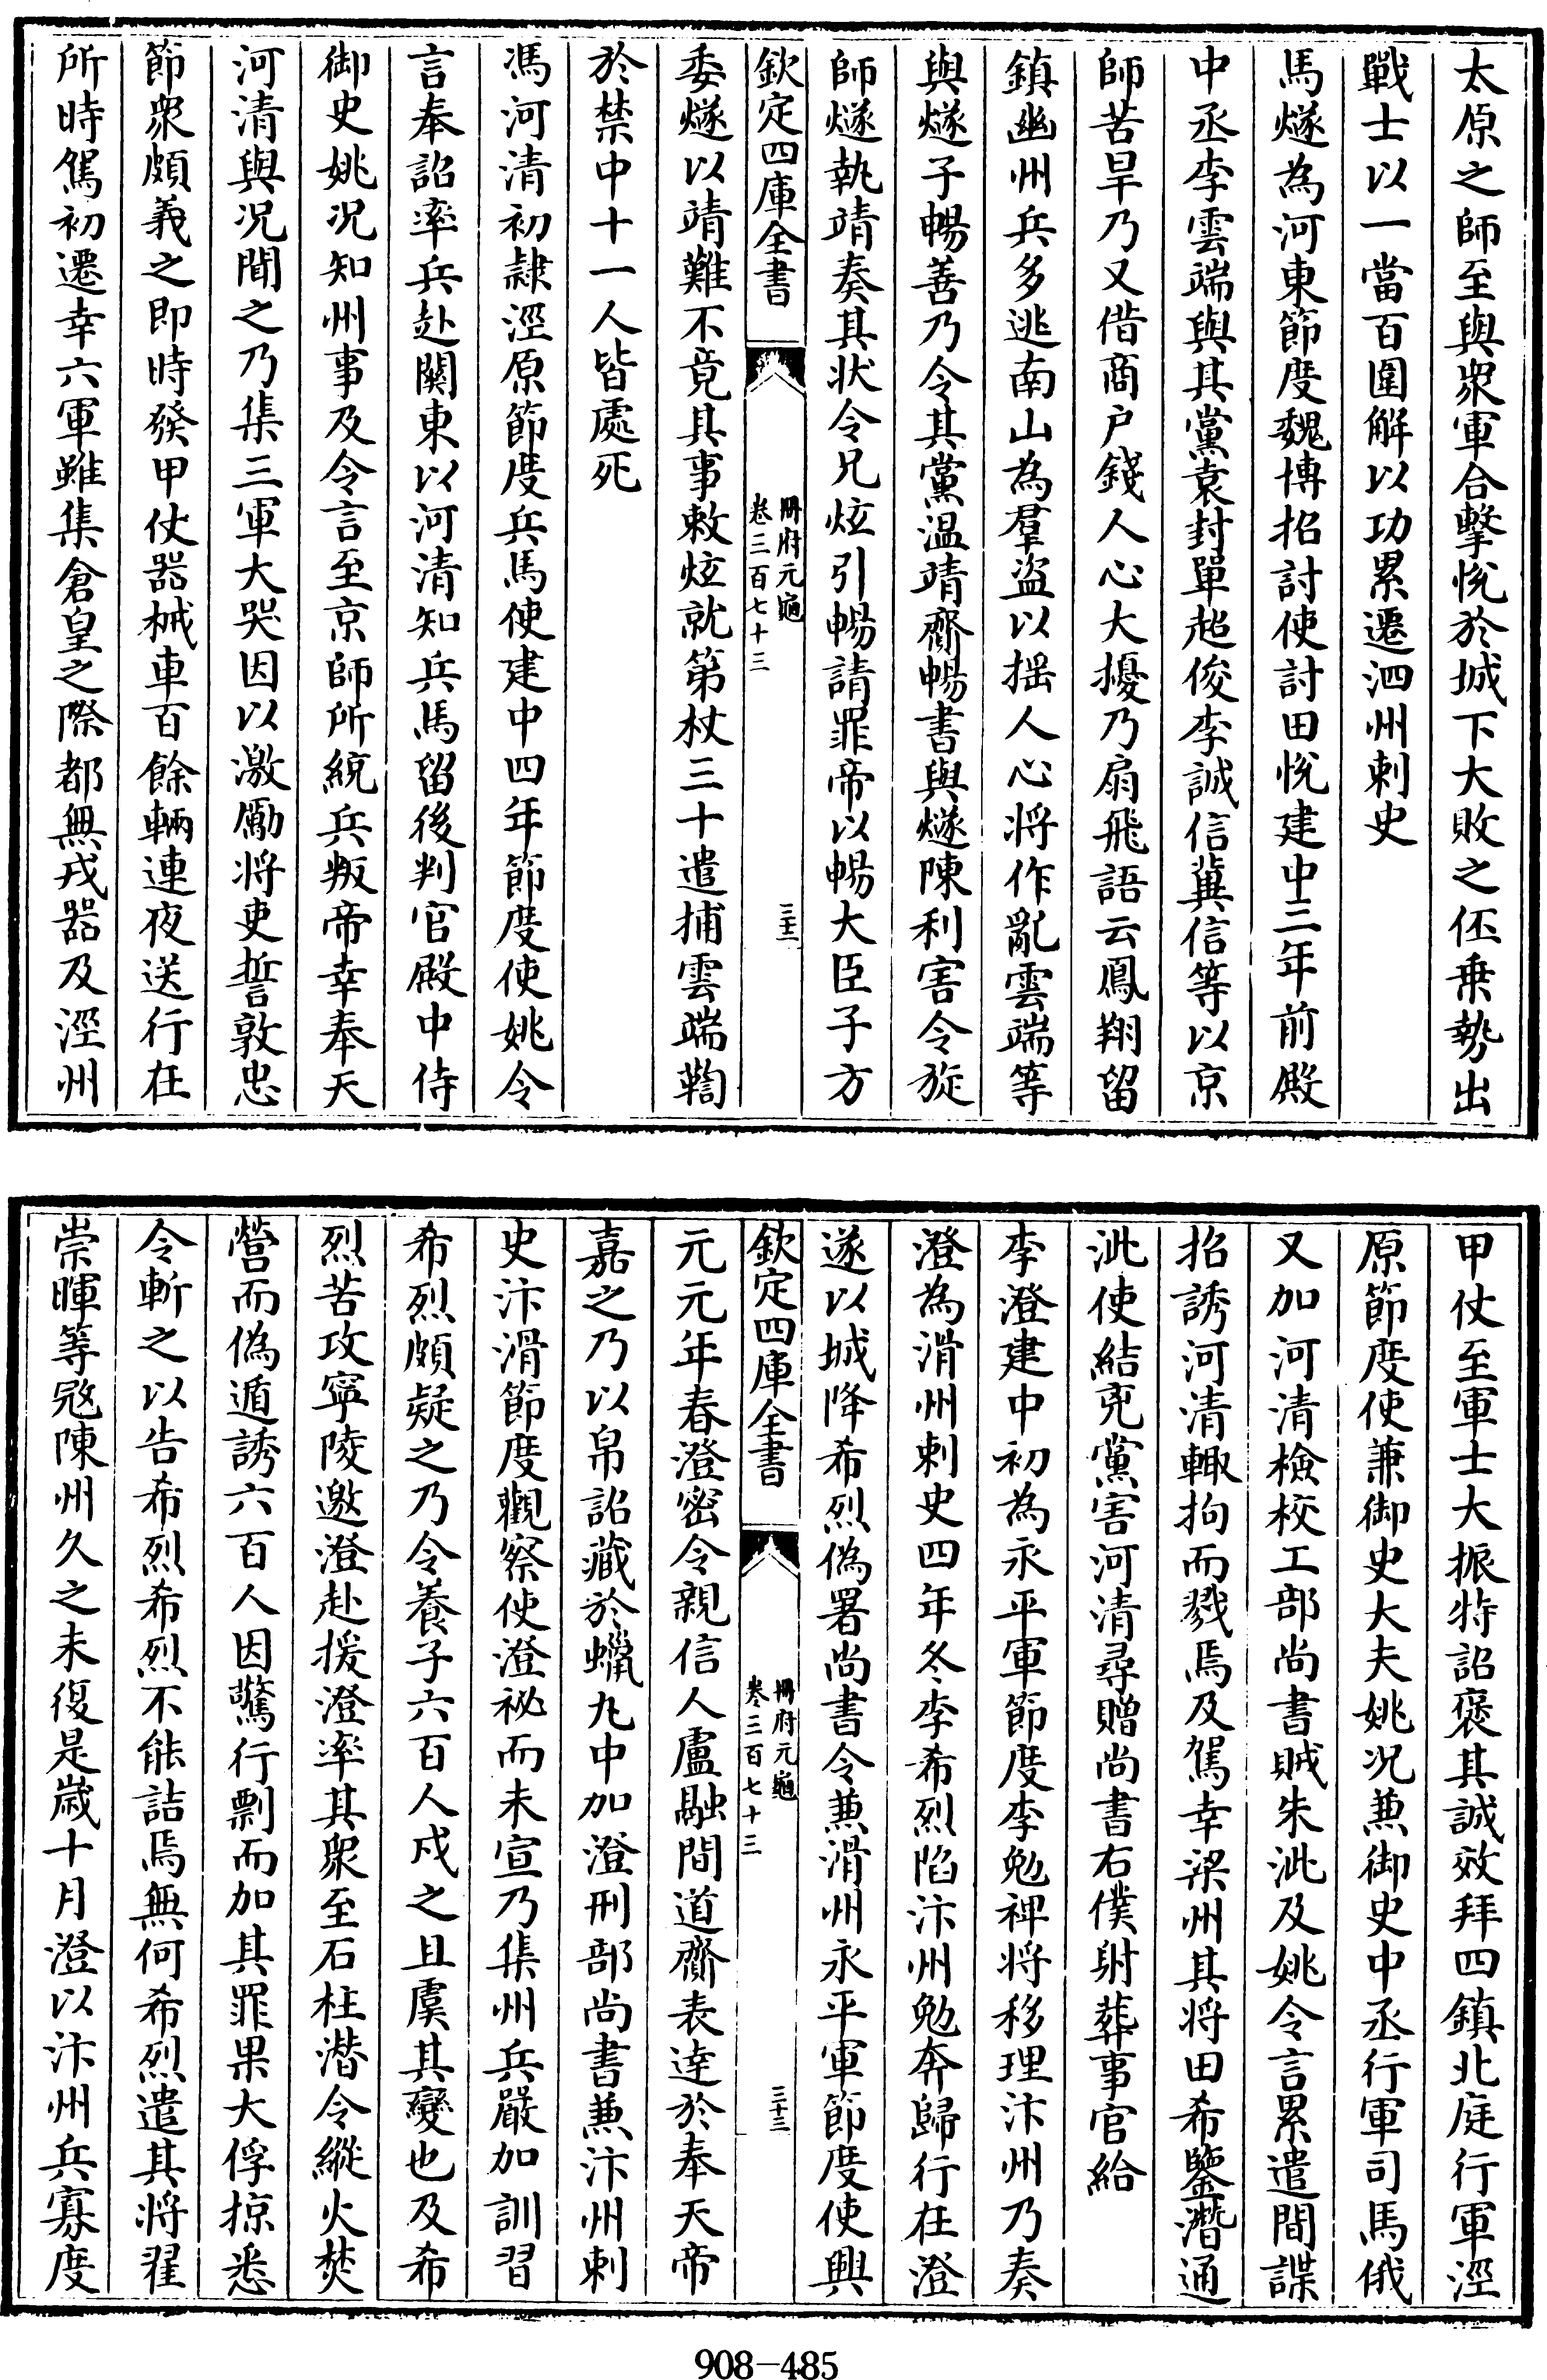 太原之師至與衆軍合擊悅於城下大敗之伾乗勢出
戰士以一當百圍解以功累遷泗州刺史
馬燧為河東節度魏博招討使討田悅建中三年前殿
中丞李雲端與其黨袁封單超俊李誠信冀信等以京
師苦旱乃又借商户錢人心大擾乃扇飛語云鳳翔留
鎮幽州兵多逃南山為羣盜以揺人心将作亂雲端等
與燧子暢善乃令其黨温靖齎暢書與燧陳利害令旋
師燧執靖奏其狀令兄炫引暢請罪帝以暢大臣子方
欽定四庫全書
冊府元龜
卷三百七十三
三十二
委燧以靖難不竟其事敕炫就第杖三十遣捕雲端鞫
於禁中十一人皆處死
馮河清初隷涇原節度兵馬使建中四年節度使姚令
言奉詔率兵赴關東以河清知兵馬留後判官殿中侍
御史姚况知州事及令言至京師所統兵叛帝幸奉天
河清與况聞之乃集三軍大哭因以激勵将吏誓敦忠
節衆頗義之即時發甲仗器械車百餘輛連夜送行在
所時駕初遷幸六軍雖集倉皇之際都無戎器及涇州
甲仗至軍士大振特詔褒其誠效拜四鎮北庭行軍涇
原節度使兼御史大夫姚况兼御史中丞行軍司馬俄
又加河清檢校工部尚書賊朱泚及姚令言累遣間諜
招誘河清輙拘而戮焉及駕幸梁州其将田希鑒潛通
泚使結兇黨害河清尋贈尚書右僕射葬事官給
李澄建中初為永平軍節度李勉裨将移理汴州乃奏
澄為滑州刺史四年冬李希烈陷汴州勉奔歸行在澄
遂以城降希烈偽署尚書令兼滑州永平軍節度使興
欽定四庫全書
冊府元龜
卷三百七十三
三十三
元元年春澄密令親信人盧融間道齎表逹於奉天帝
嘉之乃以帛詔藏於蠟丸中加澄刑部尚書兼汴州刺
史汴滑節度觀察使澄祕而未宣乃集州兵嚴加訓習
希烈頗疑之乃令養子六百人戍之且虞其變也及希
烈苦攻寜陵邀澄赴援澄率其衆至石柱潜令縱火焚
營而偽遁誘六百人因驚行剽而加其罪果大俘掠悉
令斬之以告希烈希烈不能詰焉無何希烈遣其将翟
崇暉等冦陳州久之未復是嵗十月澄以汴州兵寡度
908-485